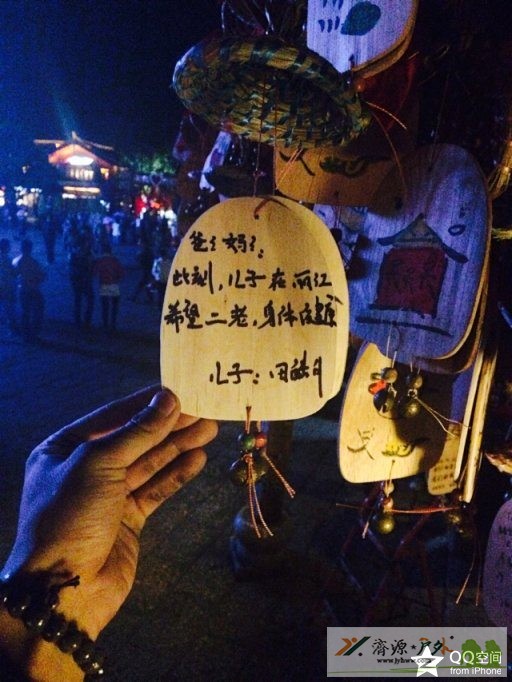 爸爸妈妈:
此刻,儿子在丽江
希望二老,身体健康
儿子:
濟源★户外
QQ空间
from iPhone